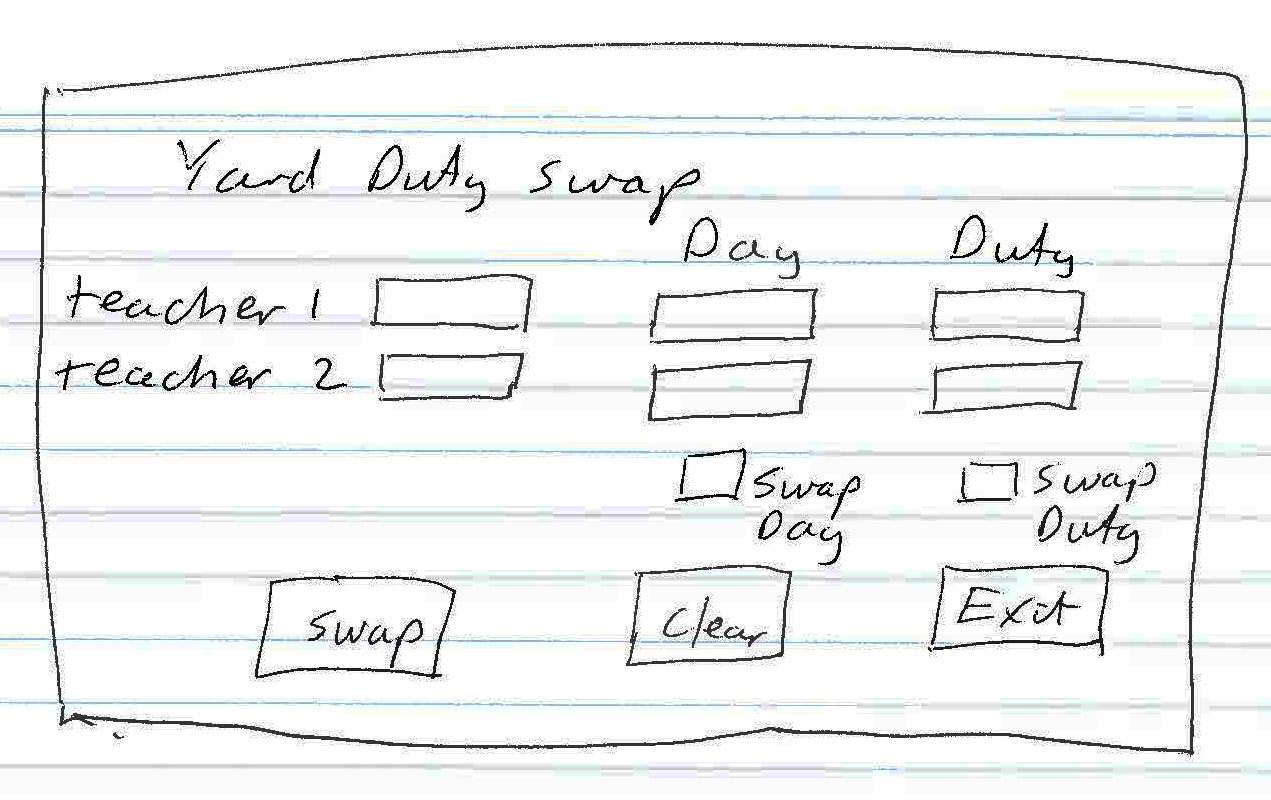 Yard Duty Swap
Day Duty
teacher 1
teacher 2
Swap Day
Swap Duty
Swap Clear Exit